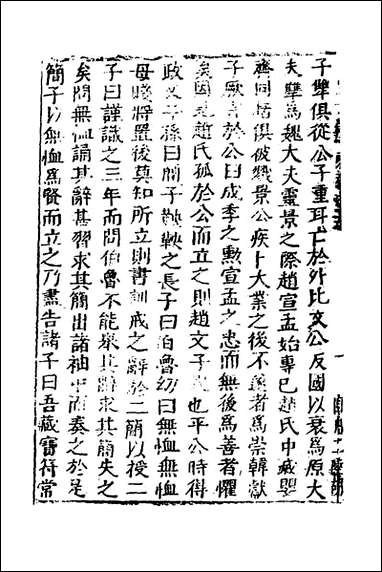 子犨俱從公子重耳亡於外比文公反國以衰爲原大
夫犨爲魏大夫靈景之際趙宣孟始專巳趙氏中
齊同括俱被戮景公疾卜大業之後不遂者爲祟韓獻
子厥言於公曰成季之勲宣孟之忠而無後爲善者懼
矣因趙氏孤於公而立之則趙文子也平公時得
政文子孫曰簡子鞅鞅之長子曰伯魯幼曰無恤無恤
母賤將置後莫知所立則書訓戒之辭於二簡以授二
子曰謹識之三年而問伯魯不能舉其辭求其簡失之
矣問無恤誦其辭甚習求其簡出諸袖中而奏之於是
簡子以無恤爲賢而立之乃盡告諸子曰吾藏寶符常